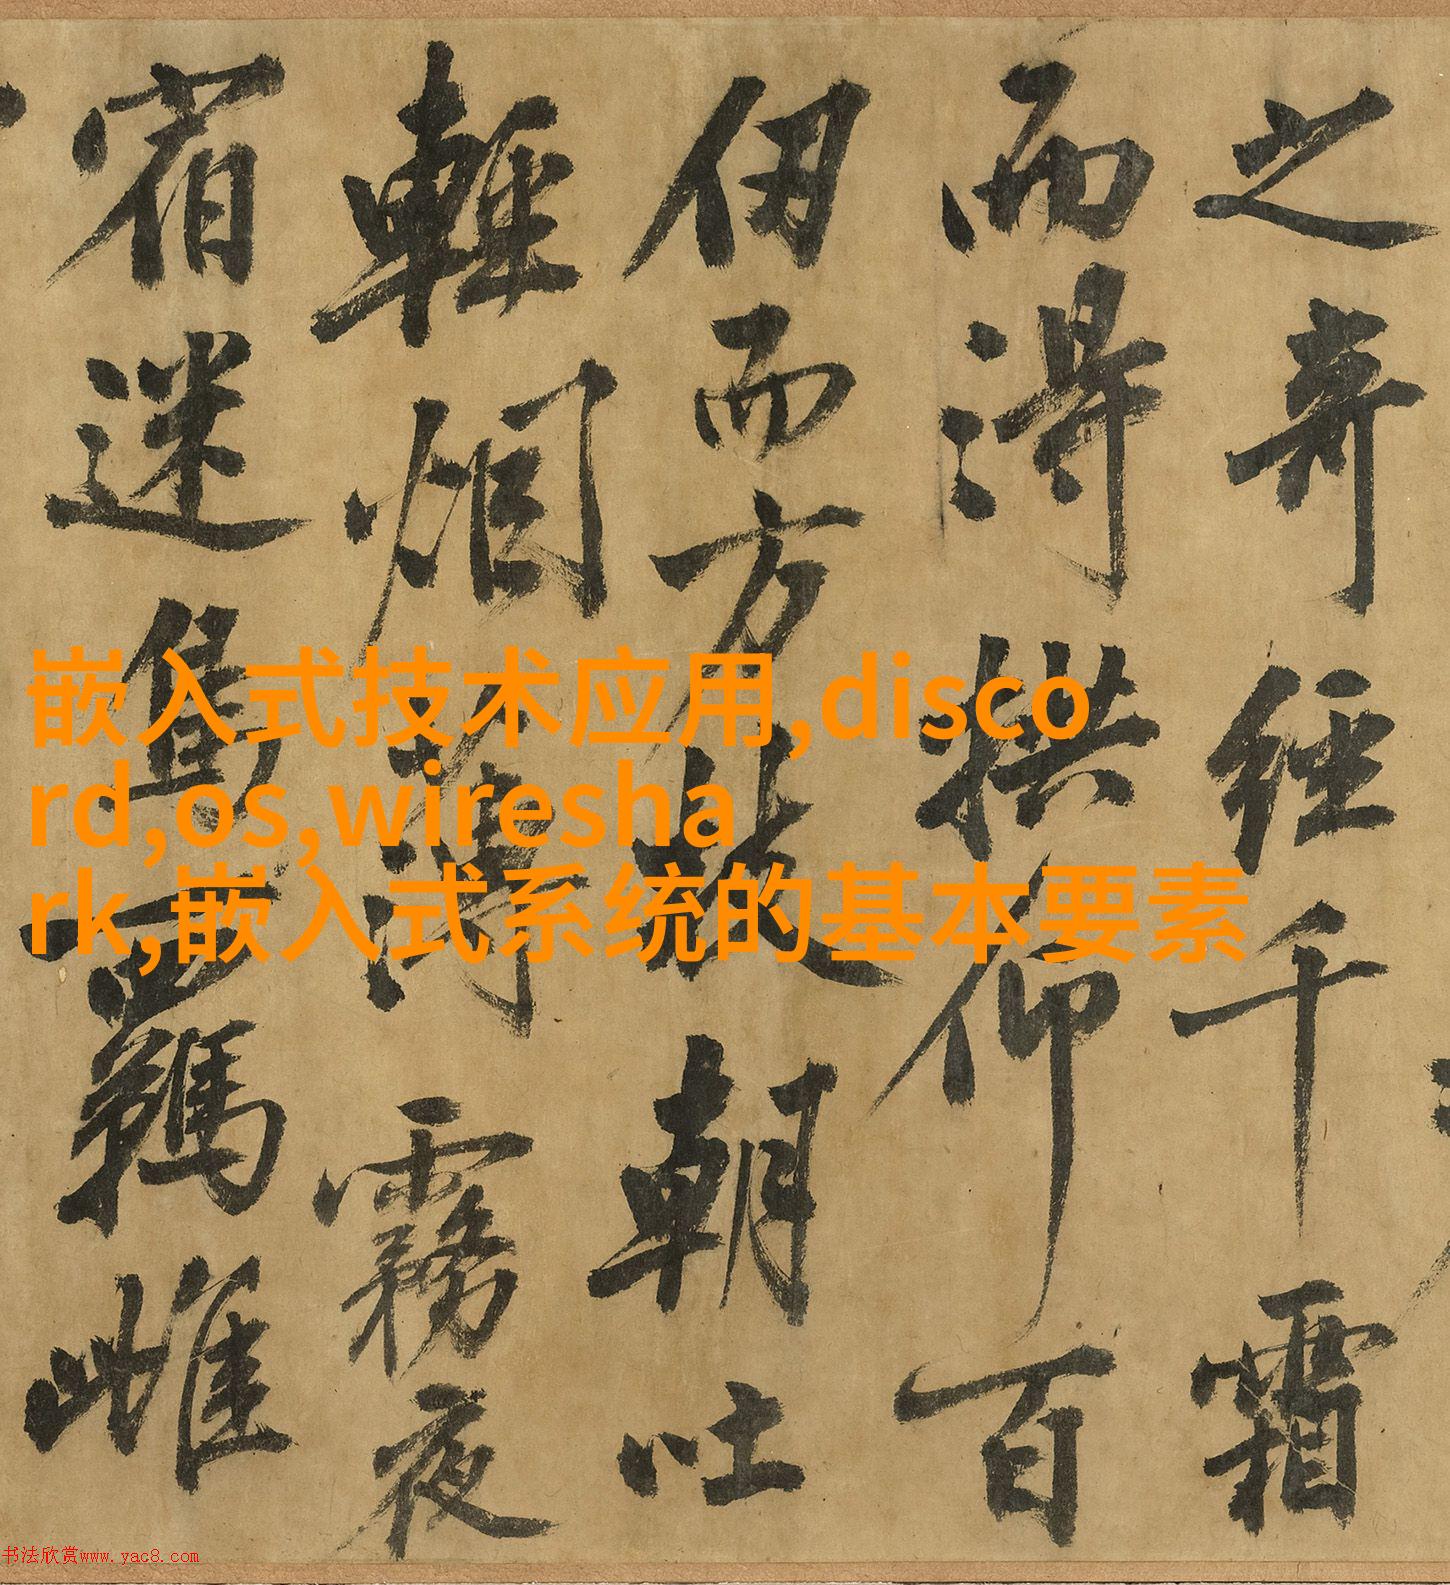 之奇經千霜
而得拱仰百
仞而方枝朝吐
輕烟薄霧夜
宿迷鳥羈雌
嵌入式技术应用,disco
rd,os,wiresha
rk,嵌入式系统的基本要素
书法欣赏www.yac8.com